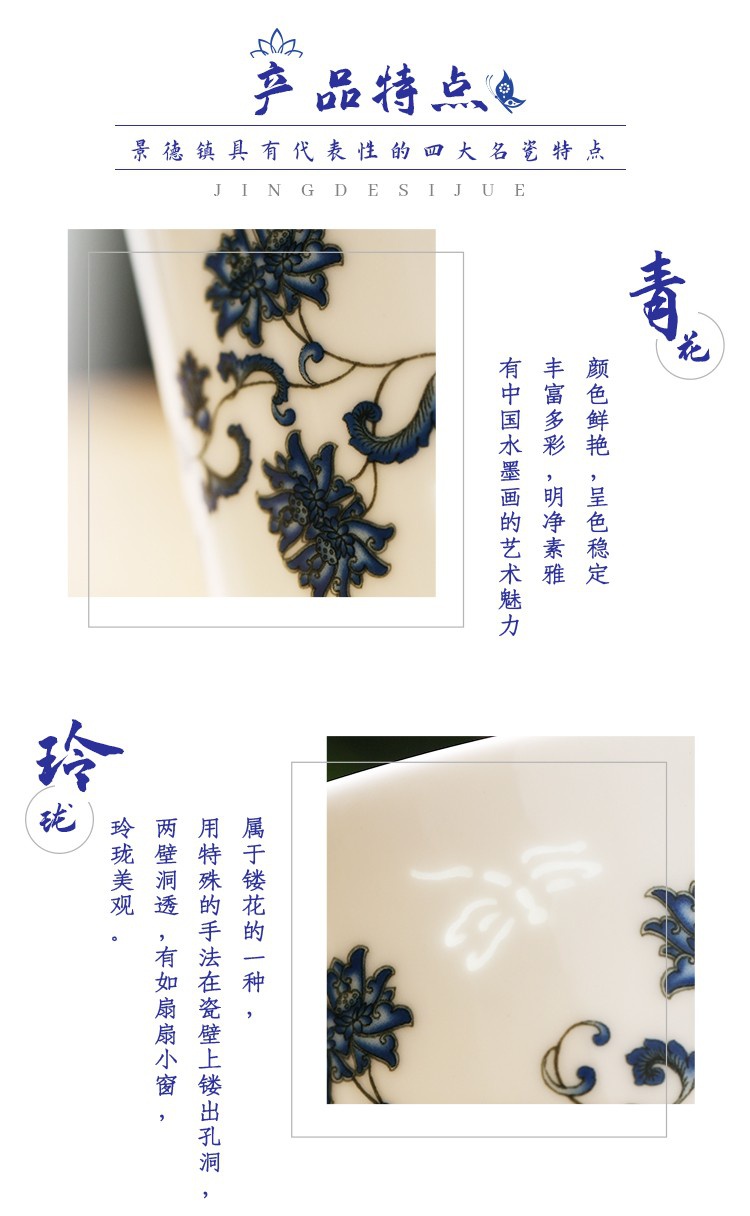 产品特点
景德镇具有代表性的四大名瓷特点
JINGDESIJUE
青花
颜色鲜艳,呈色稳定
丰富多彩,明净素雅
有中国水墨画的艺术魅力
玲珑
属于镂花的一种,
用特殊的手法在瓷壁上镂出孔洞,
两壁洞透,有如扇扇小窗,
玲珑美观。